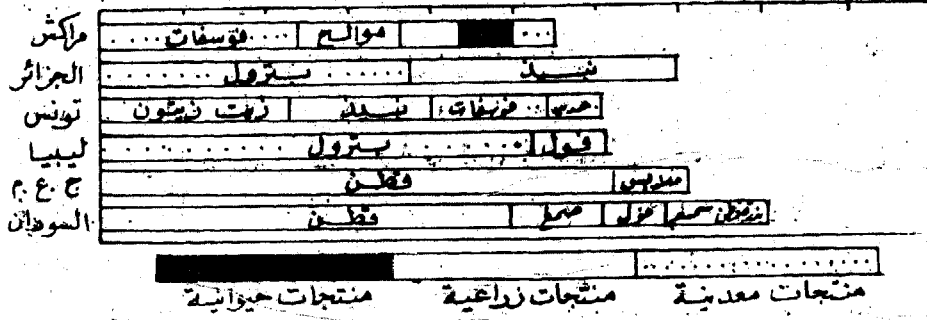 مراكش فوسفات موالح
الجزائر بترول نبيذ
تونس زيت زيتون نبيذ فوسفات حديد
ليبيا بترول فول
ج.ع.م قطن
السودان قطن صمغ فول سمسم
منتجات حيوانية منتجات زراعية منتجات معدنية